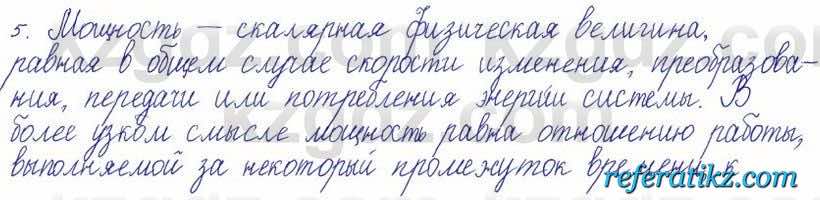 5. Мощность — скалярная физическая величина,
равная в общем случае скорости изменения, преобразова-
ния, передачи или потребления энергии системы. В
более узком смысле мощность равна отношению работы,
выполняемой за некоторый промежуток времени, к
referatikz.com